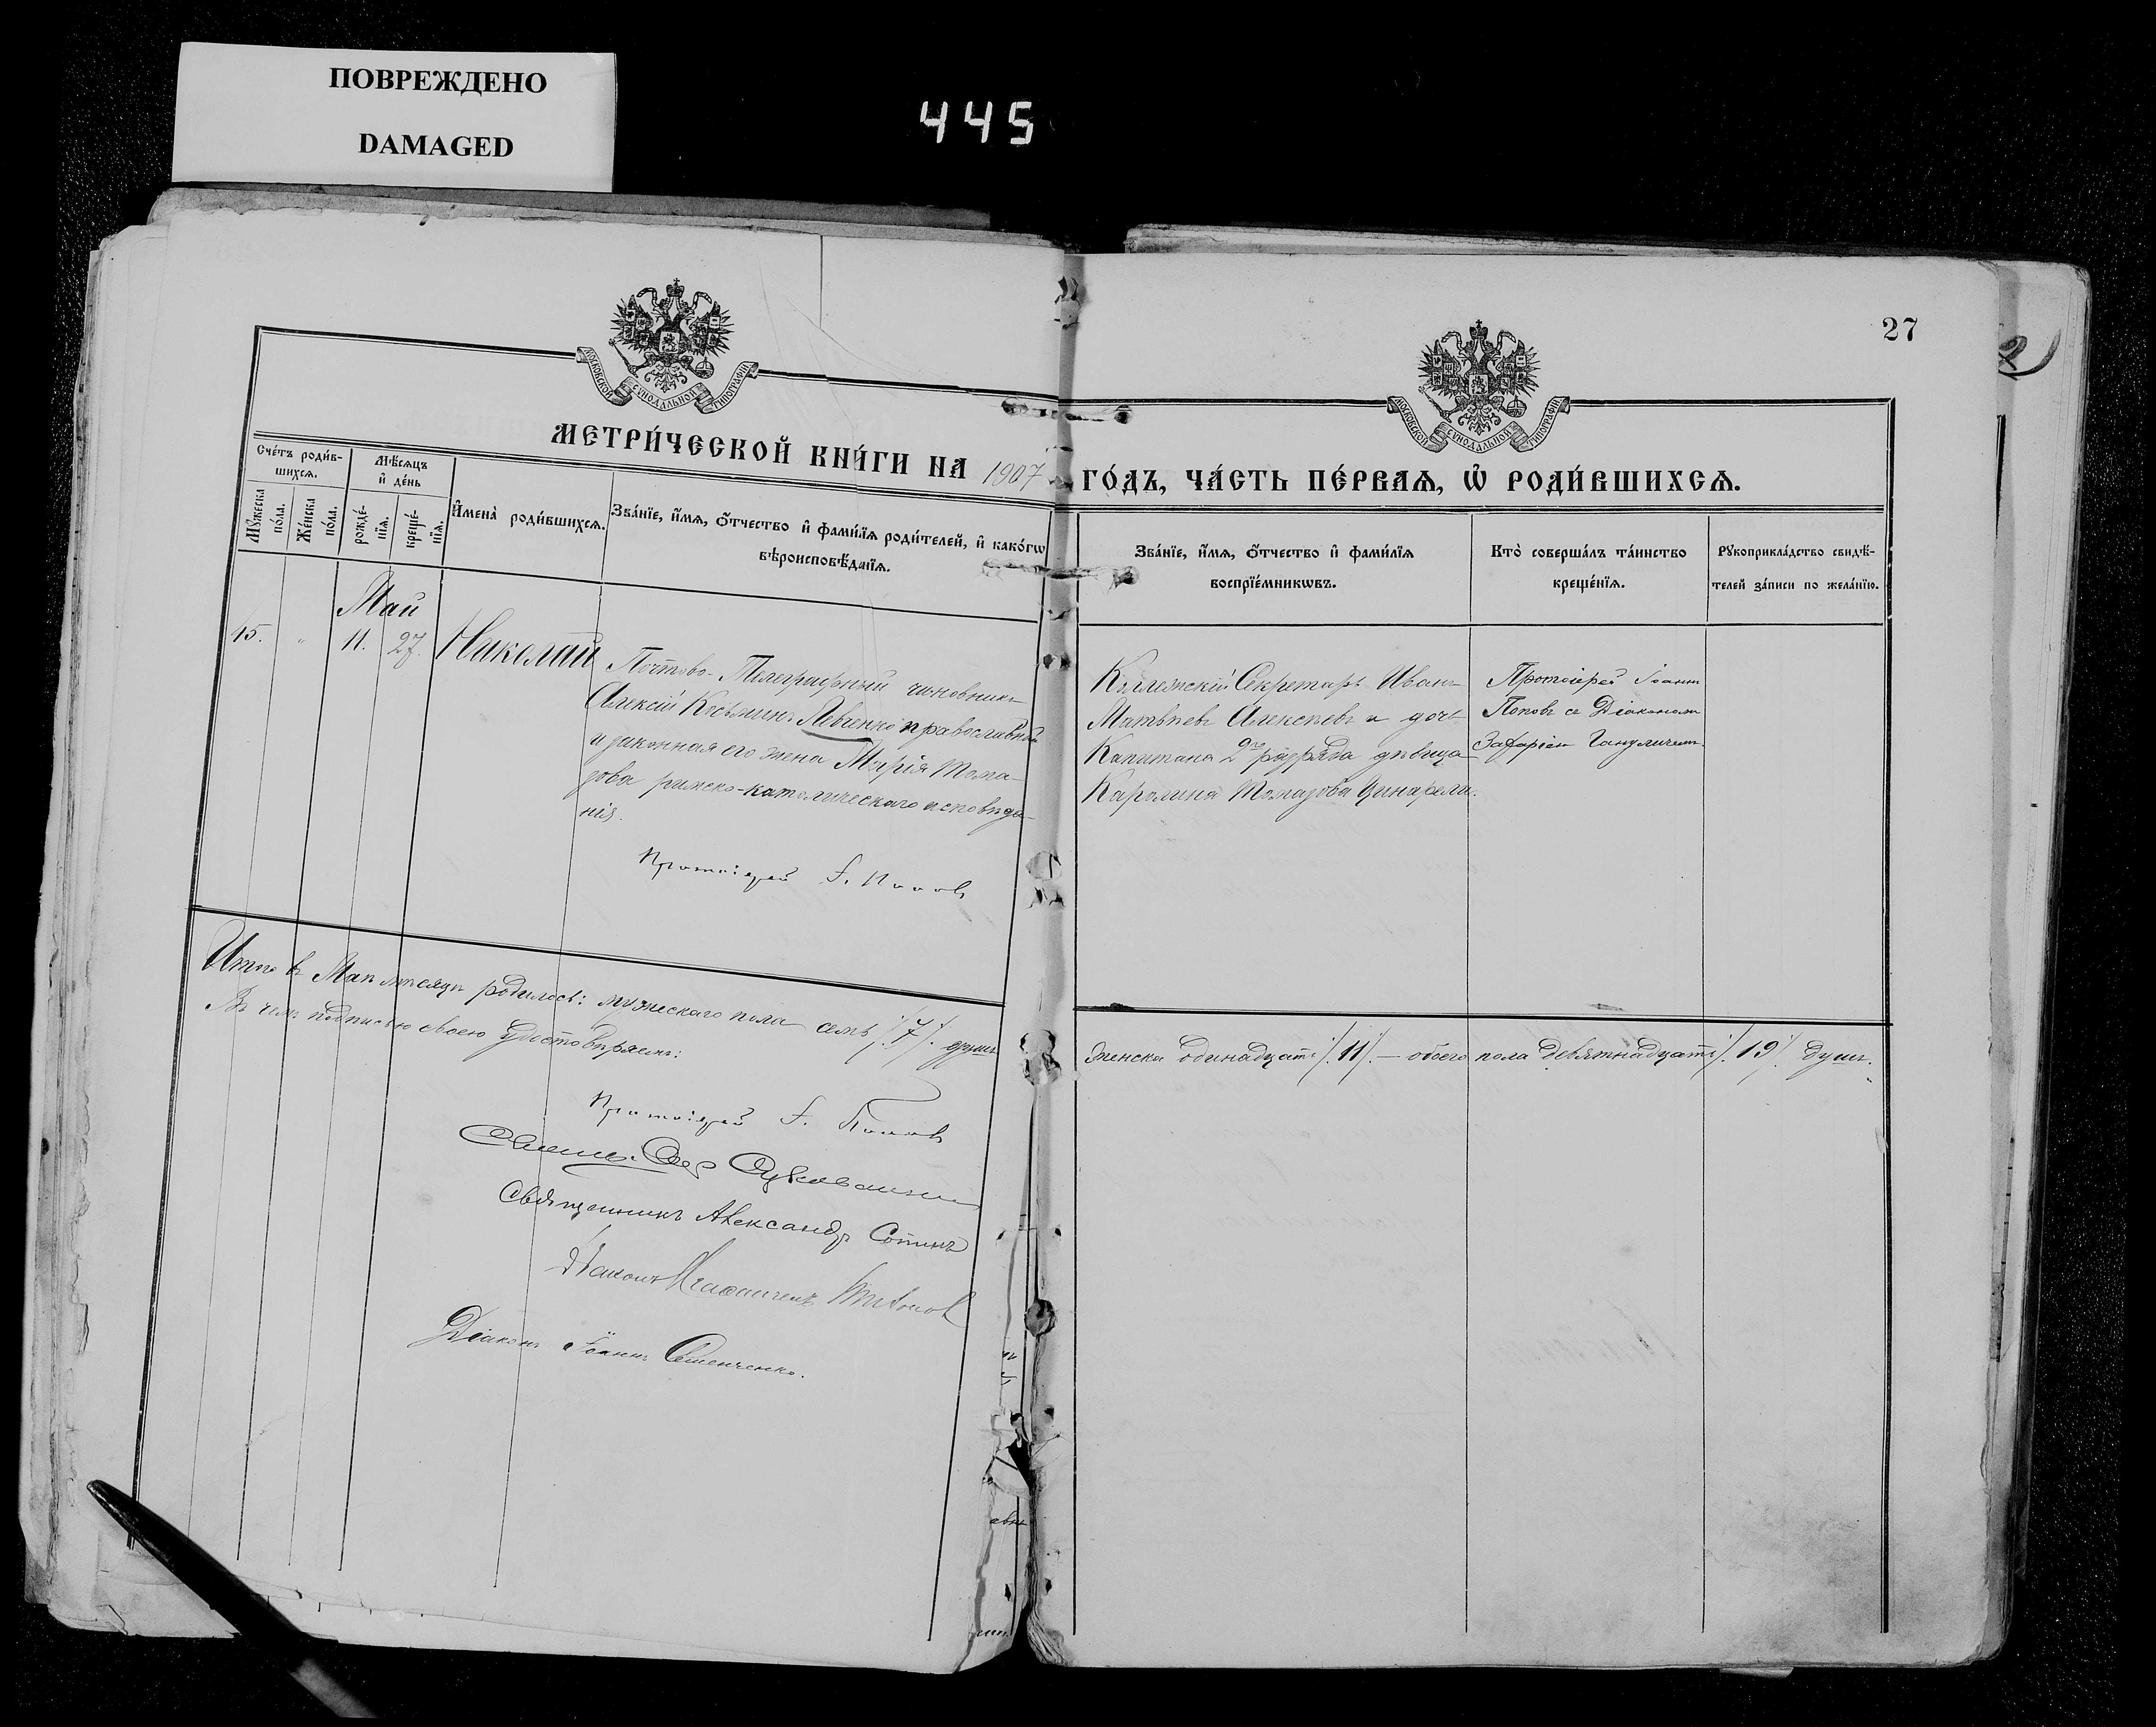 ПОВРЕЖДЕНО
DAMAGED
445
27
2)
МОСКОВСКОЙ СѴНОДАЛЬНОЙ ТИПОГРАФІИ
МОСКОВСКОЙ СѴНОДАЛЬНОЙ ТИПОГРАФІИ
МЕТРИ́ЧЕСКОЙ КНИ́ГИ НА 1907 ГО́ДЪ, ЧА́СТЬ ПЕ́РВАѦ, Ѡ҆ РОДИ́ВШИХСѦ.
Сче́тъ роди́в-
шихсѧ.
Мꙋ́жеска
по́ла.
Же́нска
по́ла.
Мѣ́сѧцъ
и҆ де́нь
рожде́-
нїѧ.
креще́-
нїѧ.
И҆мена̀ роди́вшихсѧ.
Зва́нїе, и҆́мѧ, ѻ҆́тчество и҆ фами́лїѧ роди́телей, и҆ како́гѡ
вѣроисповѣ́данїѧ.
Зва́нїе, и҆́мѧ, ѻ҆́тчество и҆ фами́лїѧ
воспрїе́мникѡвъ.
Кто̀ соверша́лъ та́инство
креще́нїѧ.
Рꙋкоприкла́дство свидѣ́-
телей за́писи по жела́нїю.
Май
15. " 11. 27. Николай
Почтово-Телеграфный чиновникъ
Алексій Косьминъ Левченко православный
и законная его жена Марія Тома-
зова римско-католическаго исповѣда-
нія.
Протоіерей І. Поповъ
Коллежскій Секретарь Иванъ
Матвѣевъ Алексѣевъ и дочь
Капитана 2го разряда дѣвица
Каролина Томазова Цинарели.
Протоіерей Іоаннъ
Поповъ съ Діакономъ
Захаріемъ
Итого въ Маѣ мѣсяцѣ родилось: мужескаго пола семь /7/. душъ
женска одинадцать /11/. — обоего пола девятнадцать /19/. душъ.
Въ чемъ подписью своею удостовѣряемъ:
Протоіерей І. Поповъ
Священникъ Александръ Сотинъ
Діаконъ
Діаконъ Іоаннъ Семенченко.